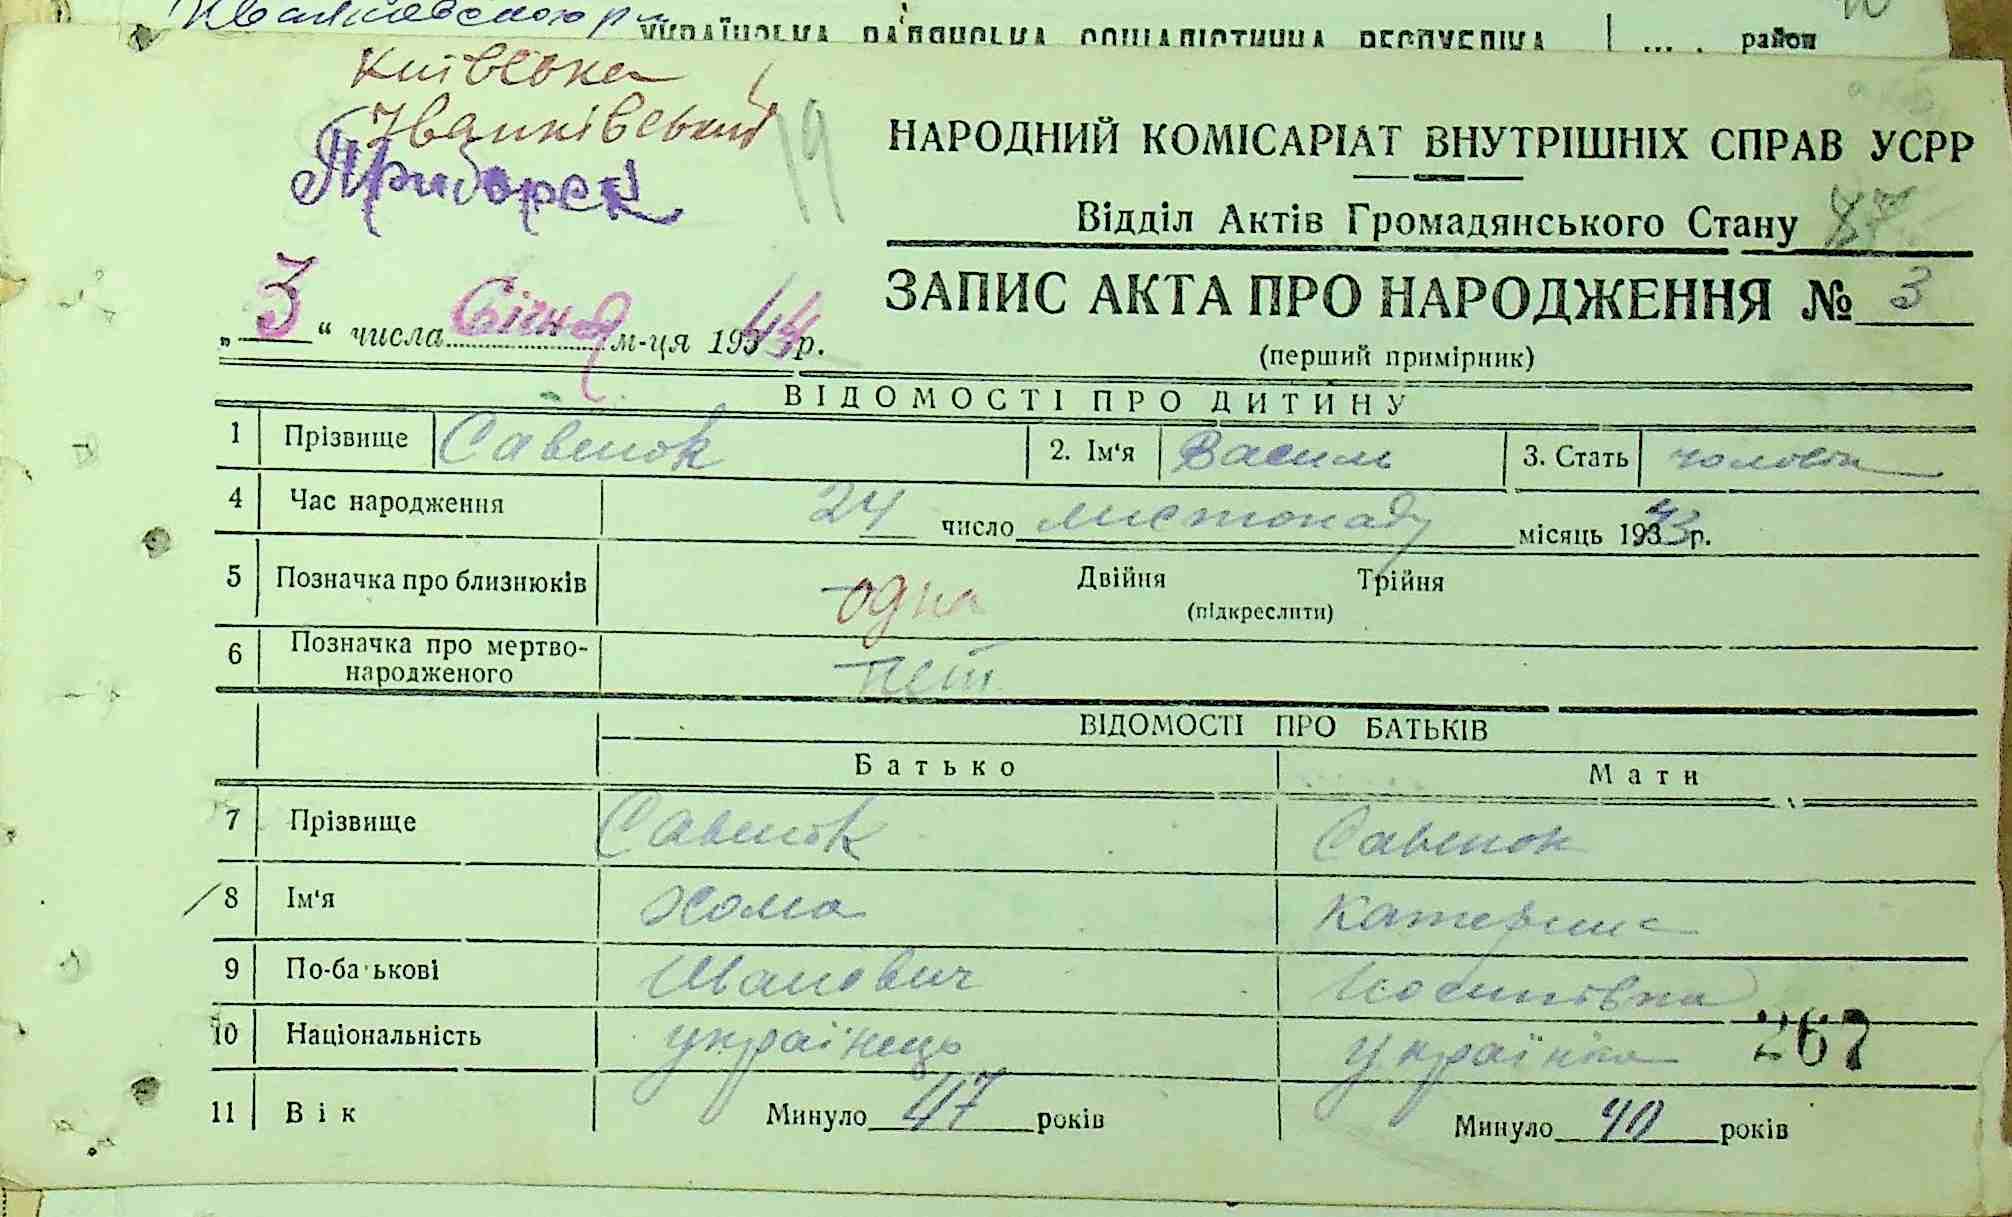 УКРАЇНСЬКА РАДЯНСЬКА СОЦІАЛІСТИЧНА РЕСПУБЛІКА район
Київська
Іванківський
Приборск
19
НАРОДНИЙ КОМІСАРІАТ ВНУТРІШНІХ СПРАВ УСРР
Відділ Актів Громадянського Стану
„ 3 “ числа Січня м-ця 1944 р.
ЗАПИС АКТА ПРО НАРОДЖЕННЯ № 3
(перший примірник)
ВІДОМОСТІ ПРО ДИТИНУ
1 Прізвище Савенок 2. Ім'я Василь 3. Стать
4 Час народження 24 число листопаду місяць 1943 р.
5 Позначка про близнюків одна Двійня Трійня
(підкреслити)
6 Позначка про мертво-
народженого нет
ВІДОМОСТІ ПРО БАТЬКІВ
Батько Мати
7 Прізвище Савенок Савенок
8 Ім'я Хома Катерина
9 По-батькові Иванович Иосипівна
10 Національність українець українка 267
11 Вік Минуло 47 років Минуло 40 років